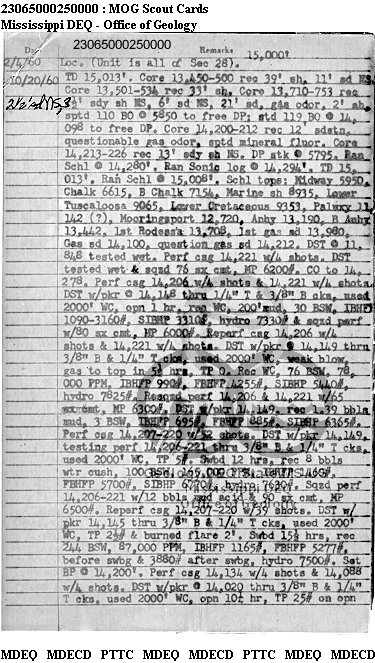 23065000250000 : MOG Scout Cards
Mississippi DEQ - Office of Geology
23065000250000
Date Remarks 15,000'
2/4/60 Loc. (Unit is all of Sec 28).
10/20/60 TD 15,013'. Core 13,450-500 rec 39' sh, 11' sd NS
Core 13,501-534 rec 33' sh. Core 13,710-753 rec
sdy sh NS, 6' sd NS, 2½' sd, gas odor, 2' sh,
sptd 110 BO @ 5850 to free DP; std 119 BO @ 14,
098 to free DP. Core 14,200-212 rec 12' sdstn,
questionable gas odor, sptd mineral fluor. Core
14,213-226 rec 13' sdy sh NS. DP stk @ 5795. Ran
Schl @ 14,280'. Ran Sonic log @ 14,294'. TD 15,
013'. Ran Schl @ 15,008'. Schl tops: Midway 5950,
Chalk 6615, B Chalk 7154, Marine sh 8935, Lower
Tuscaloosa 9065, Lower Cretaceous 9353, Paluxy 11,
142 (?), Mooringsport 12,720, Anhy 13,190, B Anhy
13,442, 1st Rodessa 13,708, 1st gas sd 13,980,
Gas sd 14,100, question gas sd 14,212. DST @ 11,
848 tested wet. Perf csg 14,221 w/4 shots. DST
tested wet & sqzd 76 sx cmt, MP 6200#. CO to 14,
278. Perf csg 14,206 w/4 shots & 14,221 w/4 shots.
DST w/pkr @ 14,148 thru 1/4" T & 3/8" B cks, used
2000' WC, opn 1 hr, ran WC, 200' mud, 30 BSW, IBHP
1090-3160#, SIBHP 3310#, hydro 7330# & sqzd perf
w/80 sx cmt, MP 6000#. Reperf csg 14,206 w/4
shots & 14,221 w/4 shots. DST w/pkr @ 14,149 thru
3/8" B & 1/4" T cks, used 2000' WC, weak blow,
gas to top in 5½ hrs, TP 0. Rec WC, 76 BSW, 78,
000 PPM, IBHFP 990#, FBHFP 4255#, SIBHP 5440#,
hydro 7825#. Resqzd perf 14,206 & 14,221 w/65
sx cmt, MP 6300#. DST w/pkr 14,149, rec 1.39 bbls
mud, 3 BSW, IBHFP 695#, FBHFP 885#, SIBHP 6365#.
Perf csg 14,207-220 w/52 shots. DST w/pkr 14,149,
testing perf 14,206-221 thru 3/8" B & 1/4" T cks,
used 2000' WC, TP 25#. Swbd 12 hrs, rec 8 bbls
wtr cushn, 100 BSW, 165,000 PPM, IBHFP 1460#,
FBHFP 5700#, SIBHP 6770#, hydro 7630#. Sqzd perf
14,206-221 w/12 bbls mud acid & 90 sx cmt, MP
6500#. Reperf csg 14,207-220 w/39 shots. DST w/
pkr 14,145 thru 3/8" B & 1/4" T cks, used 2000'
WC, TP 2½# & burned flare 2'. Swbd 15½ hrs, rec
244 BSW, 87,000 PPM, IBHFP 1165#, FBHFP 5277#,
before swbg & 3880# after swbg, hydro 7500#. Set
BP @ 14,200'. Perf csg 14,134 w/4 shots & 14,088
w/4 shots. DST w/pkr @ 14,020 thru 3/8" B & 1/4"
T cks, used 2000' WC, opn 10½ hr, TP 25# on opn
MDEQ MDECD PTTC MDEQ MDECD PTTC MDEQ MDECD